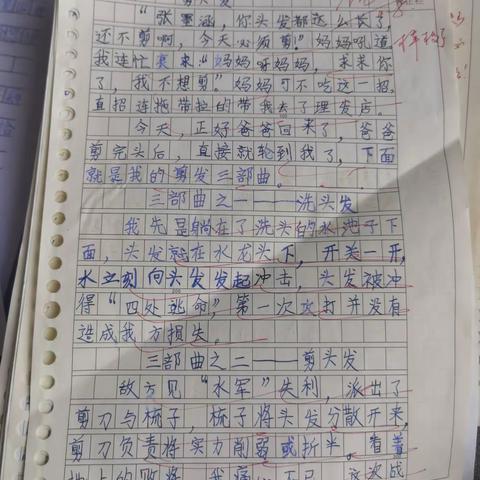 剪头发
"张雯涵，你头发都这么长了，
还不剪啊，今天必须剪。"妈妈吼道
我连忙哀求："妈妈呀妈妈，求求你
了，我不想剪。"妈妈可不吃这一招，
直招连拖带拉的带我去了理发店。
今天，正好爸爸回来了，爸爸
剪完头后，直接就轮到我了，下面
就是我的剪发三部曲。
三部曲之一——洗头发
我先是躺在了洗头的水池子下
面，头发就在水龙头下，开关一开，
水立刻向头发发起冲击，头发被冲
得"四处逃命"，第一次攻打并没有
造成我方损失。
三部曲之二——剪头发
敌方见"水军"失利，派出了
剪刀与梳子，梳子将头发分散开来，
剪刀负责将实力削弱或折半。看着
地上的败将，我痛 不已，这次战